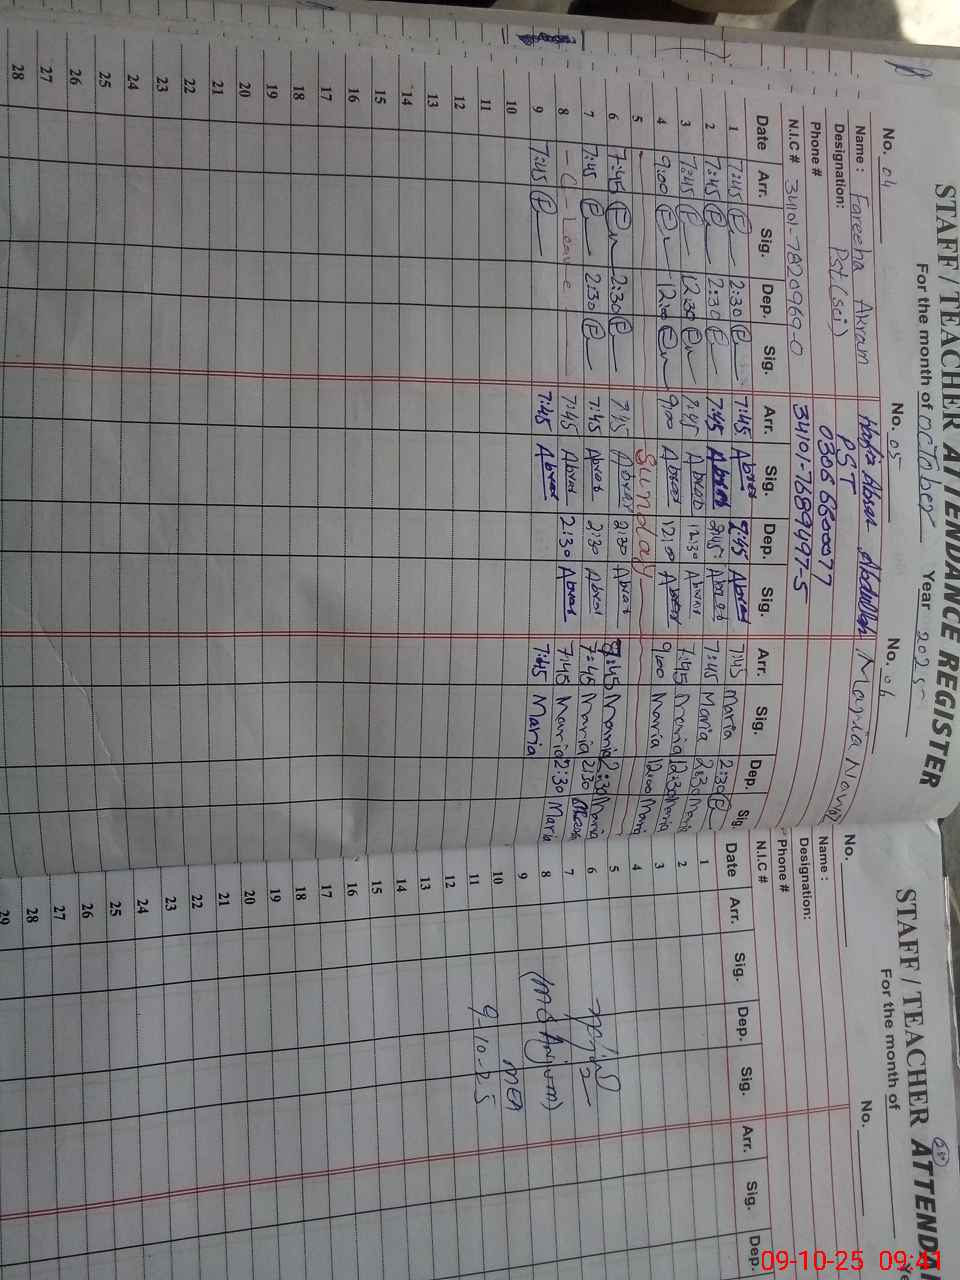 STAFF / TEACHER ATTENDANCE REGISTER
For the month of October Year 2025
No. 04 No. 05 No. 06
Name : Fareeha Akram Hafiz Absar Abdullah Maria Nawaz
Designation: Pst (sci) PST
Phone # 0306 6600077
N.I.C # 34101-7820969-0 34101-7689497-5
Date Arr. Sig. Dep. Sig. Arr. Sig. Dep. Sig. Arr. Sig. Dep. Sig.
1 7:45 2:30 7:45 2:45 7:45 Maria 2:30
2 7:45 2:30 7:45 2:45 7:45 Maria 2:30 Maria
3 7:45 12:30 7:45 12:30 7:45 Maria 12:30 Maria
4 9:00 12:00 9:00 12:00 9:00 Maria 12:00 Maria
5 Sunday
6 7:45 2:30 7:45 2:30 7:45 Maria 2:30 Maria
7 7:45 2:30 7:45 2:30 7:45 Maria 2:30
8 - C - Leave 7:45 2:30 7:45 Maria 2:30 Maria
9 7:45 7:45 7:45 Maria
10
11
12
13
14
15
16
17
18
19
20
21
22
23
24
25
26
27
28
STAFF / TEACHER ATTENDA
For the month of
No. No.
Name :
Designation:
Phone #
N.I.C #
Date Arr. Sig. Dep. Sig. Arr. Sig. Dep.
1
2
3
4
5
6
7
8
9
10
11
12
13
14
15
16
17
18
19
20
21
22
23
24
25
26
27
28
29
(M S Anjum)
MEA
9-10-25
09-10-25 09:41